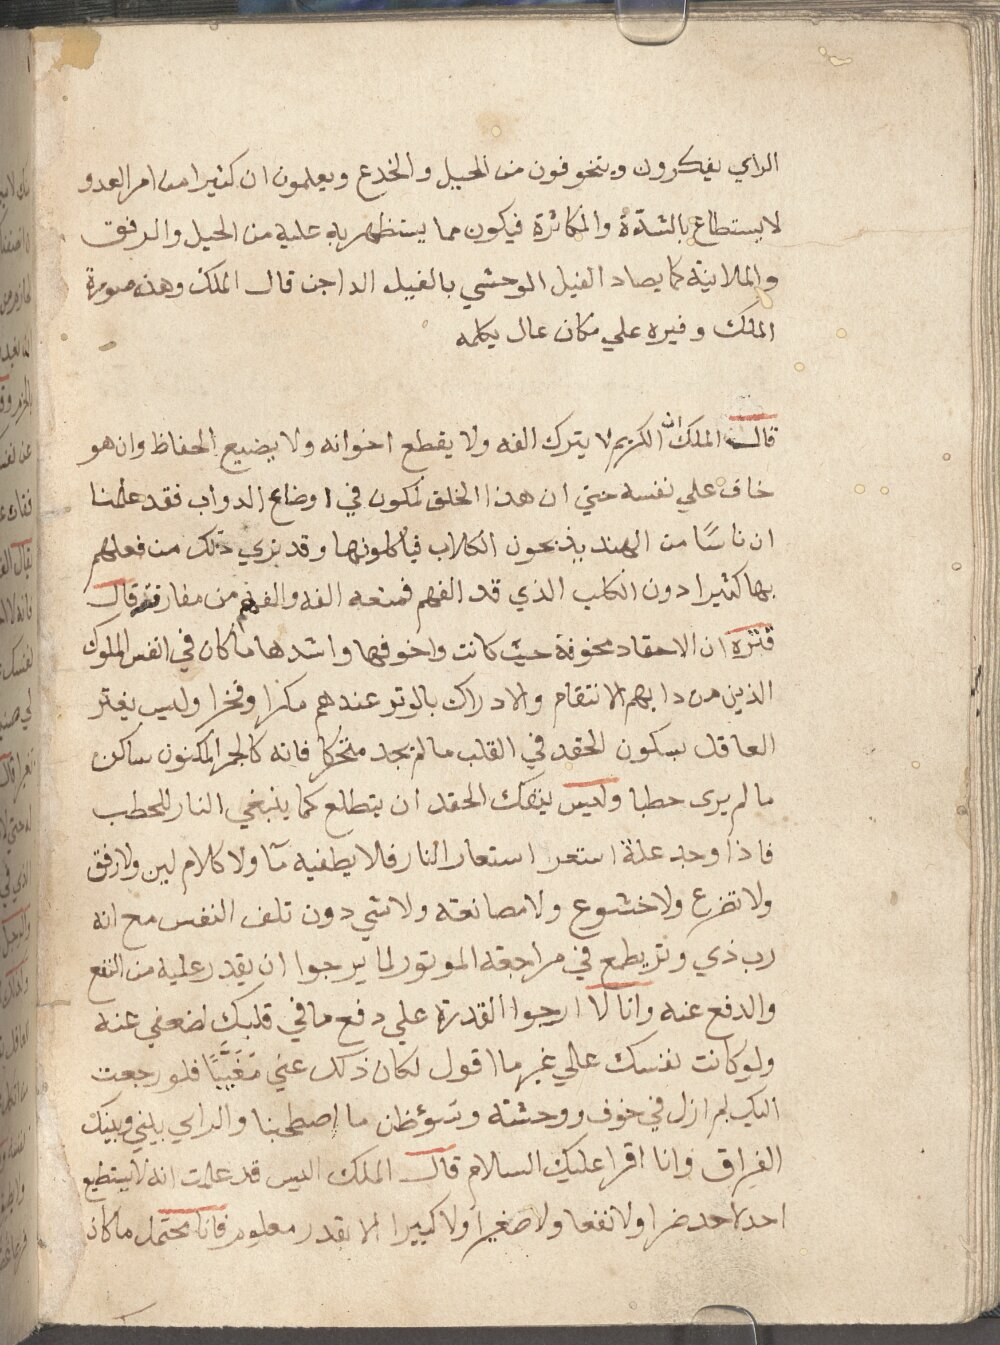 الراي يفكرون ويتخوفون من الحيل والخدع ويعلمون ان كثيرا من امر العدو
لا يستطاع بالشدة والمكاثرة فيكون مما يستظهر به عليه من الحيل والرفق
والملاينة كما يصاد الفيل الوحشي بالفيل الداجن قال الملك وهذه صورة
الملك وفيره علي مكان عال يكلمه
قال الملك ان الكريم لا يترك الفه ولا يقطع اخوانه ولا يضيع الحفاظ وان هو
خاف علي نفسه حتي ان هذا الخلق لمكون في اوضاع الدواب فقد علمنا
ان ناسًا من الهند يذبحون الكلاب فيأكلونها وقد نري ذلك من فعلهم
بها كثيرا دون الكلب الذي قد الفهم فمنعه الفه والفهم من مفارقته قال
فنزه ان الاحقاد مخوفة حيث كانت واخوفها واشدها ما كان في انفس الملوك
الذين من دابهم الانتقام والادراك بالوتر عندهم مكرا وفخرا وليس يغتر
العاقل بسكون الحقد في القلب ما لم يجد متحركا فانه كالجمر المكنون ساكن
ما لم يري حطبا وليس ينفك الحقد ان يتطلع كما ينبغي النار للحطب
فاذا وجد علة استعر استعار النار فلا يطفيه مآ ولا كلام لين ولا رفق
ولا تضرع ولا خشوع ولا مصانعة ولا شي دون تلف النفس مع انه
رب ذي وتر يطمع في مراجعة الموتور لما يرجوا ان يقدر عليه من النفع
والدفع عنه وانا لا ارجوا القدرة علي دفع ما في قلبك لضعفي عنه
ولو كانت نفسك علي غير ما اقول لكان ذكك عني مغيبًا فلو رجعت
اليك لم ازل في خوف ووحشة وسؤ ظن ما اصطحبنا والراي بيني وبينك
الفراق وانا اقرا عليك السلام قال الملك اليس قد علمت انه لا يستطيع
احد لاحد ضرا ولا نفعا ولا صغيرا ولا كبيرا الا بقدر معلوم فانا محتمل ما كان